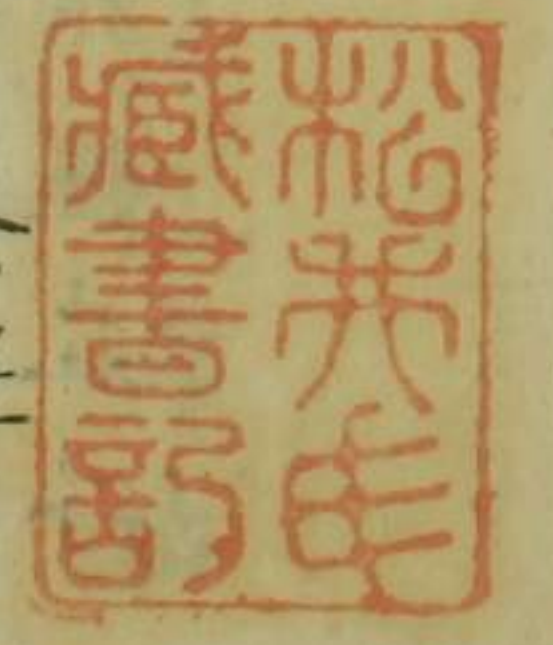 松井氏
藏書記